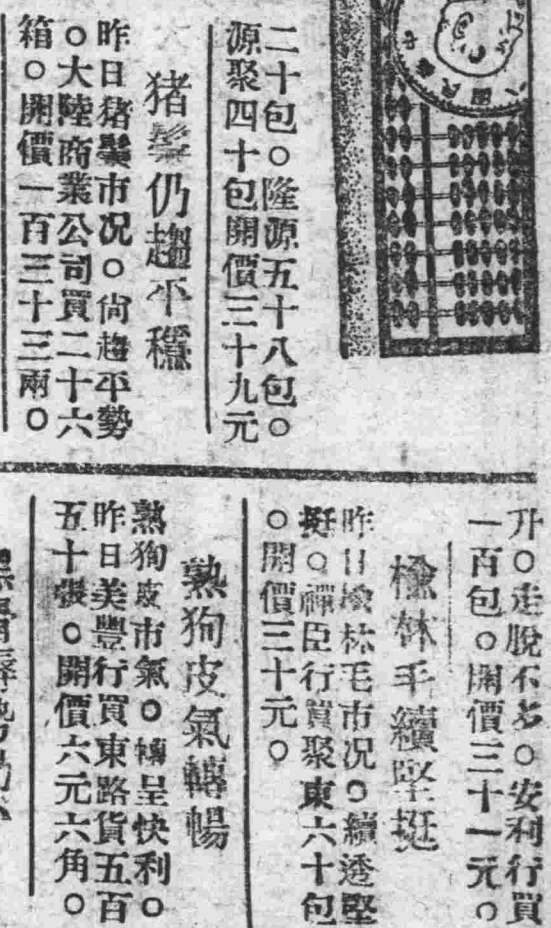 二十包○隆源五十八包○
源聚四十包開價三十九元
猪鬃仍趨平穩
昨日猪鬃市况○尙趨平勢
○大陸商業公司買二十六
箱○開價一百三十三兩○
升○走脫不多○安利行買
一百包○開價三十一元○
楡林毛續堅挺
昨日楡林毛市况○續透堅
挺○禪臣行買聚東六十包
○開價三十元○
熟狗皮氣轉暢
熟狗皮市氣○轉呈快利○
昨日美豐行買東路貨五百
五十張○開價六元六角○